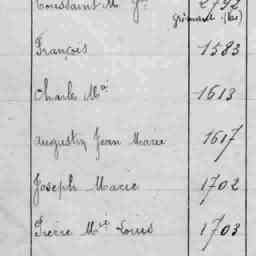 Toussaint M 2792
François 1583
Charle Mie 1613
Augustin Jean Marie 1617
Joseph Marie 1702
Pierre Mie Louis 1703